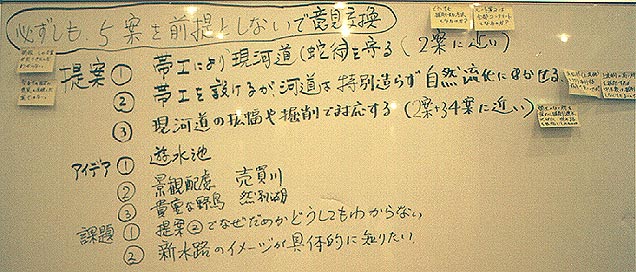 必ずしも、5案を前提としないで意見交換
提案 ① 帯工により現河道(蛇行)を守る(2案に近い)
② 帯工を設けるが河道は特別造らず自然流化にまかせる
③ 現河道の拡幅や掘削で対応する(2案+34案に近い)
アイデア ① 遊水池
② 景観配慮 売買川
③ 貴重な野鳥 然別湖
課題 ① 提案②でなぜだめかどうしてもわからない
② 新水路のイメージが具体的に知りたい